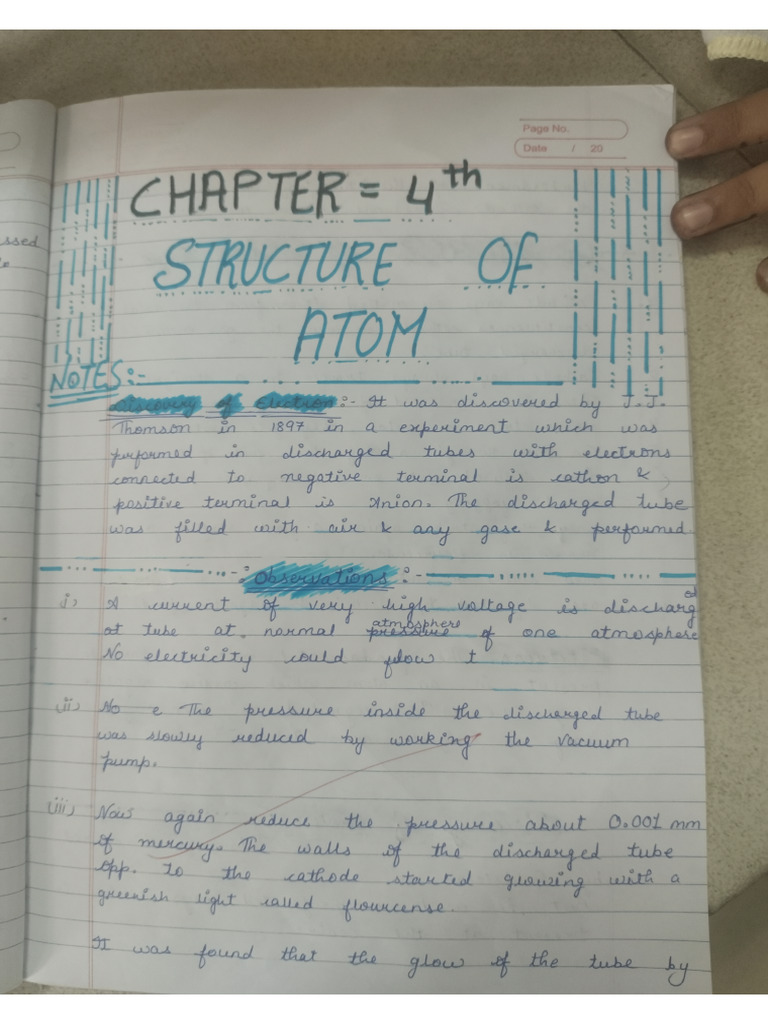 Page No.
Date / 20
CHAPTER = 4th
STRUCTURE OF
ATOM
NOTES:-
Discovery of Electron:- It was discovered by J.J.
Thomson in 1897 in a experiment which was
performed in discharged tubes with electrons
connected to negative terminal is cathon &
positive terminal is Anion. The discharged tube
was filled with air & any gase & performed
:- Observations :-
i) A current of very high voltage is discharged
at tube at normal pressure atmosphere of one atmosphere
No electricity could flow t
ii) No e The pressure inside the discharged tube
was slowly reduced by working the vacuum
pump.
iii) Now again reduce the pressure about 0.001 mm
of mercury. The walls of the discharged tube
opp. to the cathode started glowing with a
greenish light called flourcense.
It was found that the glow of the tube by
ssed